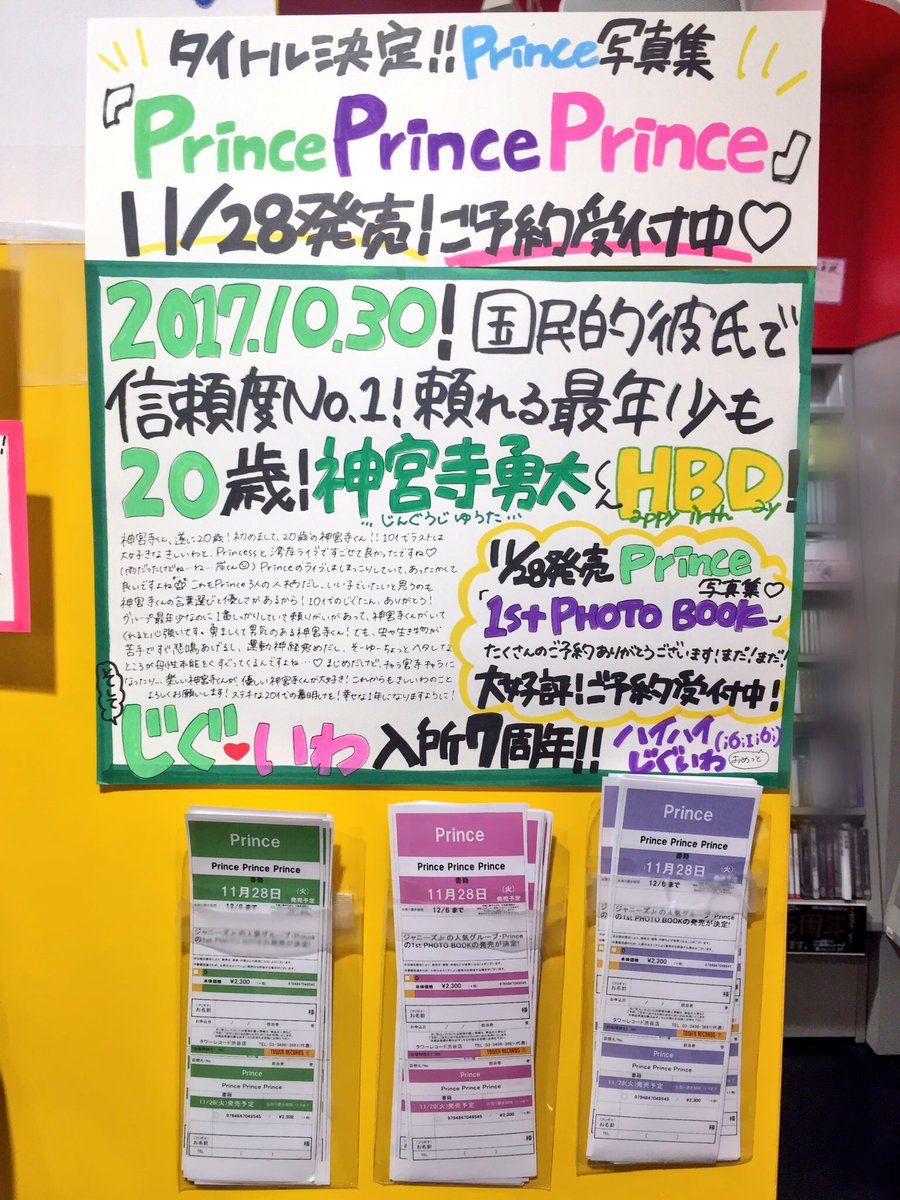 タイトル決定!!Prince写真集
『Prince Prince Prince』
11/28発売!ご予約受付中♡
2017.10.30!国民的彼氏で
信頼度No.1!頼れる最年少も
20歳!神宮寺勇太くんHBD!
appy irth ay
…じんぐうじ ゆうた…
神宮寺くん、遂に20歳!初めまして、20歳の神宮寺くん!!10代ラストは
大好きな きしいわと、Princessと湾岸ライブですごせて良かったですね♡
(雨だったけどね…ね…岸くん)Princeのライブはしまっこりしていて、あったかくて
良いですよね これもPrince3人の人柄だし、いい子でいたいと思うのも
神宮寺くんの言葉選びと優しさがあるから!10代のじぐたん、ありがとう!
グループ最年少なのに1番しっかりしていて頼りがいがあって、神宮寺くんがいて
くれると心強いです。勇ましくて男気のある神宮寺くん!でも、虫や生き物が
苦手ですぐ悲鳴あげるし、運動神経発めだし、そーゆーちょっとヘタレな
ところが母性本能をくすぐってくるんですよね…♡まじめだけど、チャラ宮チャラに
なったり…楽しい神宮寺くんが、優しい神宮寺くんが大好き!これからもきしいわのこと
よろしくお願いします!ステキな20代の幕明けを!幸せな1年になりますように!
11/28発売 Prince
写真集♡
「1st PHOTO BOOK」
たくさんのご予約ありがとうございます!まだ!まだ!
大好評!ご予約受付中!
そして
じぐ♥いわ 入所7周年!!
ハイハイ
じぐいわ
おめっと
Prince
Prince Prince Prince
書籍
11月28日 (火)
発売予定
12/6まで
ジャニーズJr.の人気グループ・Prince
の1st PHOTO BOOKの発売が決定!
本体価格 ¥2,300
9784847049545
お名前 様
お申込日
担当者
タワーレコード渋谷店 TEL.03-3496-3661(代表)
TOWER RECORDS
Prince Prince Prince
書籍
11/28(火)発売予定
9784847049545 ¥2,300
お名前 様
TEL ( )
Prince
Prince Prince Prince
書籍
11月28日 (火)
発売予定
12/6まで
ジャニーズJr.の人気グループ・Prince
の1st PHOTO BOOKの発売が決定!
本体価格 ¥2,300
9784847049545
お名前 様
お申込日
担当者
タワーレコード渋谷店 TEL.03-3496-3661(代表)
TOWER RECORDS
Prince Prince Prince
書籍
11/28(火)発売予定
9784847049545 ¥2,300
お名前 様
TEL ( )
Prince
Prince Prince Prince
書籍
11月28日 (火)
発売予定
12/6まで
ジャニーズJr.の人気グループ・Prince
の1st PHOTO BOOKの発売が決定!
本体価格 ¥2,300
9784847049545
お名前 様
お申込日
担当者
タワーレコード渋谷店 TEL.03-3496-3661(代表)
TOWER RECORDS
Prince Prince Prince
書籍
11/28(火)発売予定
9784847049545 ¥2,300
お名前 様
TEL ( )